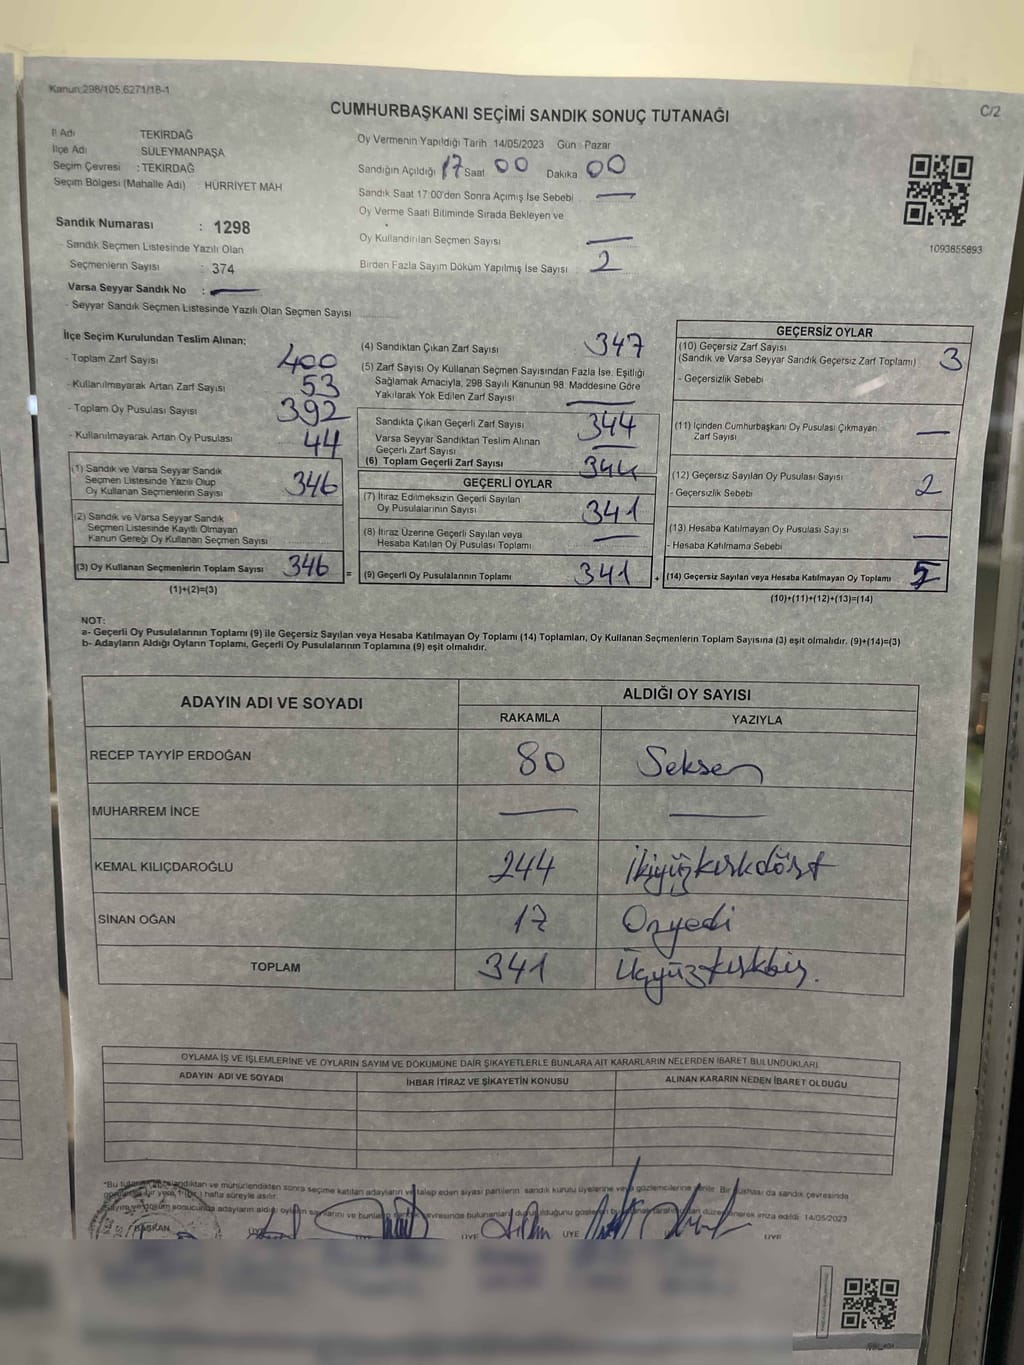 Kanun:298/105,6271/18-1
CUMHURBAŞKANI SEÇİMİ SANDIK SONUÇ TUTANAĞI
C/2
İl Adı TEKİRDAĞ
İlçe Adı SÜLEYMANPAŞA
Seçim Çevresi : TEKİRDAĞ
Seçim Bölgesi (Mahalle Adı) : HÜRRİYET MAH
Oy Vermenin Yapıldığı Tarih 14/05/2023 Gün : Pazar
Sandığın Açıldığı 17 Saat 00 Dakika 00
Sandık Saat 17:00'den Sonra Açımış İse Sebebi —
Oy Verme Saati Bitiminde Sırada Bekleyen ve
Oy Kullandırılan Seçmen Sayısı —
Birden Fazla Sayım Döküm Yapılmış İse Sayısı 2
1093855893
Sandık Numarası : 1298
- Sandık Seçmen Listesinde Yazılı Olan
Seçmenlerin Sayısı : 374
Varsa Seyyar Sandık No : —
- Seyyar Sandık Seçmen Listesinde Yazılı Olan Seçmen Sayısı
İlçe Seçim Kurulundan Teslim Alınan;
- Toplam Zarf Sayısı 400
- Kullanılmayarak Artan Zarf Sayısı 53
- Toplam Oy Pusulası Sayısı 392
- Kullanılmayarak Artan Oy Pusulası 44
(1) Sandık ve Varsa Seyyar Sandık
Seçmen Listesinde Yazılı Olup
Oy Kullanan Seçmenlerin Sayısı 346
(2) Sandık ve Varsa Seyyar Sandık
Seçmen Listesinde Kayıtlı Olmayan
Kanun Gereği Oy Kullanan Seçmen Sayısı
(3) Oy Kullanan Seçmenlerin Toplam Sayısı 346 =
(1)+(2)=(3)
(4) Sandıktan Çıkan Zarf Sayısı 347
(5) Zarf Sayısı Oy Kullanan Seçmen Sayısından Fazla İse, Eşitliği
Sağlamak Amacıyla, 298 Sayılı Kanunun 98. Maddesine Göre
Yakılarak Yok Edilen Zarf Sayısı —
Sandıkta Çıkan Geçerli Zarf Sayısı 344
Varsa Seyyar Sandıktan Teslim Alınan
Geçerli Zarf Sayısı —
(6) Toplam Geçerli Zarf Sayısı 344
GEÇERLİ OYLAR
(7) İtiraz Edilmeksizin Geçerli Sayılan
Oy Pusulalarının Sayısı 341
(8) İtiraz Üzerine Geçerli Sayılan veya
Hesaba Katılan Oy Pusulası Toplamı —
(9) Geçerli Oy Pusulalarının Toplamı 341 +
GEÇERSİZ OYLAR
(10) Geçersiz Zarf Sayısı
(Sandık ve Varsa Seyyar Sandık Geçersiz Zarf Toplamı) 3
- Geçersizlik Sebebi
(11) İçinden Cumhurbaşkanı Oy Pusulası Çıkmayan
Zarf Sayısı —
(12) Geçersiz Sayılan Oy Pusulası Sayısı 2
- Geçersizlik Sebebi
(13) Hesaba Katılmayan Oy Pusulası Sayısı —
- Hesaba Katılmama Sebebi
(14) Geçersiz Sayılan veya Hesaba Katılmayan Oy Toplamı 5
(10)+(11)+(12)+(13)=(14)
NOT:
a- Geçerli Oy Pusulalarının Toplamı (9) ile Geçersiz Sayılan veya Hesaba Katılmayan Oy Toplamı (14) Toplamları, Oy Kullanan Seçmenlerin Toplam Sayısına (3) eşit olmalıdır. (9)+(14)=(3)
b- Adayların Aldığı Oyların Toplamı, Geçerli Oy Pusulalarının Toplamına (9) eşit olmalıdır.
ADAYIN ADI VE SOYADI ALDIĞI OY SAYISI
RAKAMLA YAZIYLA
RECEP TAYYİP ERDOĞAN 80 Seksen
MUHARREM İNCE — —
KEMAL KILIÇDAROĞLU 244 İkiyüzkırkdört
SİNAN OĞAN 17 Onyedi
TOPLAM 341 Üçyüzkırkbir.
OYLAMA İŞ VE İŞLEMLERİNE VE OYLARIN SAYIM VE DÖKÜMÜNE DAİR ŞİKAYETLERLE BUNLARA AİT KARARLARIN NELERDEN İBARET BULUNDUKLARI
ADAYIN ADI VE SOYADI İHBAR İTİRAZ VE ŞİKAYETİN KONUSU ALINAN KARARIN NEDEN İBARET OLDUĞU
*Bu ve mühürlendikten sonra seçime katılan adayların ve talep eden siyasi partilerin sandık kurulu üyelerine veya gözlemcilerine verilir. Bir nüshası da sandık çevresinde
hafta süreyle asılır.
sonucunda adayların aldığı çevresinde bulunanların imza edildi. 14/05/2023
BAŞKAN ÜYE ÜYE ÜYE